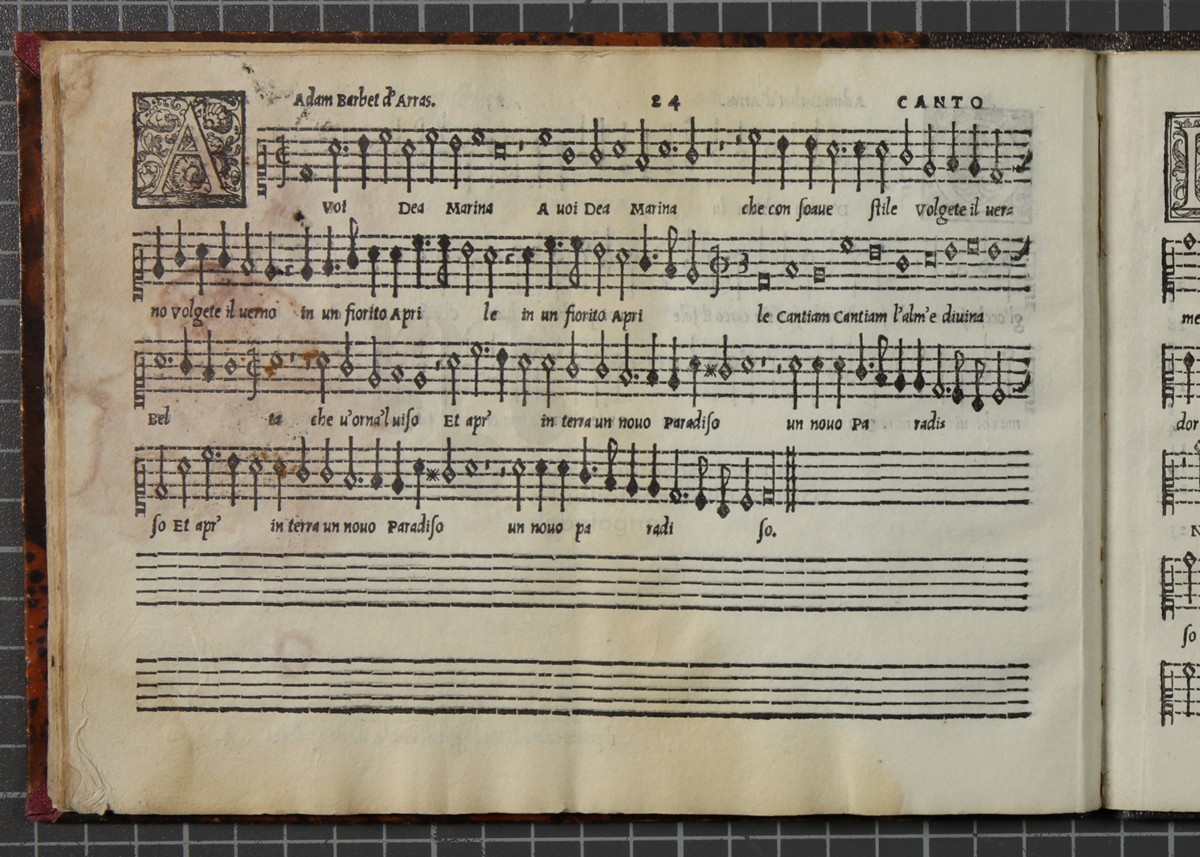 Adam Barbet d'Arras. 24 CANTO
A Voi Dea Marina A uoi Dea Marina che con ſoaue ſtile Volgete il uer-
no Volgete il uerno in un fiorito Apri le in un fiorito Apri le Cantiam Cantiam l'alm'e diuina
Bel ta che u'orna'l uiſo Et apr' in terra un nouo Paradiſo un nouo Pa radi-
ſo Et apr' in terra un nouo Paradiſo un nouo pa radi ſo.
me
dor
N
ſo